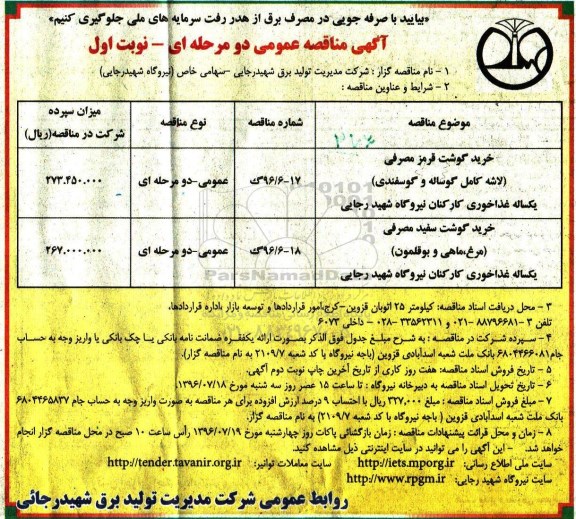 «بیایید با صرفه جویی در مصرف برق از هدر رفت سرمایه های ملی جلوگیری کنیم»
آگهی مناقصه عمومی دو مرحله ای - نوبت اول
۱ - نام مناقصه گزار : شرکت مدیریت تولید برق شهیدرجایی -سهامی خاص (نیروگاه شهیدرجایی)
۲ - شرایط و عناوین مناقصه :
موضوع مناقصه
شماره مناقصه
نوع مناقصه
میزان سپرده شرکت در مناقصه(ریال)
خرید گوشت قرمز مصرفی
(لاشه کامل گوساله و گوسفندی)
یکساله غذاخوری کارکنان نیروگاه شهید رجایی
۹۶/۶-۱۷ک
عمومی-دو مرحله ای
۲۷۳.۴۵۰.۰۰۰
خرید گوشت سفید مصرفی
(مرغ،ماهی و بوقلمون)
یکساله غذاخوری کارکنان نیروگاه شهید رجایی
۹۶/۶-۱۸ک
عمومی-دو مرحله ای
۲۶۷.۰۰۰.۰۰۰
ParsNamadData
۳ - محل دریافت اسناد مناقصه: کیلومتر ۲۵ اتوبان قزوین-کرج،امور قراردادها و توسعه بازار ،اداره قراردادها،
تلفن ۳-۸۸۷۹۶۶۸۱-۰۲۱ و ۳۳۵۶۲۳۱۱-۰۲۸ - داخلی ۶۰۷۳
۴ - سپرده شرکت در مناقصه : به شرح مبلغ جدول فوق الذکر بصورت ارائه یکفقره ضمانت نامه بانکی یا چک بانکی یا واریز وجه به حساب
جام ۶۸۰۴۴۶۶۰۸۱ بانک ملت شعبه اسدآبادی قزوین (باجه نیروگاه با کد شعبه ۲۱۰۹/۷ به نام مناقصه گزار).
۵ - تاریخ فروش اسناد مناقصه: هفت روز کاری از تاریخ آخرین چاپ نوبت دوم آگهی.
۶ - تاریخ تحویل اسناد مناقصه به دبیرخانه نیروگاه : تا ساعت ۱۵ عصر روز سه شنبه مورخ ۱۳۹۶/۰۷/۱۸.
۷ - مبلغ فروش اسناد مناقصه : مبلغ ۳۲۷.۰۰۰ ریال با احتساب ۹ درصد ارزش افزوده برای هر مناقصه به صورت واریز وجه به حساب جام ۶۸۰۴۴۶۵۸۳۷
بانک ملت شعبه اسدآبادی قزوین ( باجه نیروگاه با کد شعبه ۲۱۰۹/۷) به نام مناقصه گزار.
۸ - زمان و محل قرائت پیشنهادات مناقصه : زمان بازگشائی پاکات روز چهارشنبه مورخ ۱۳۹۶/۰۷/۱۹ رأس ساعت ۱۰ صبح در محل مناقصه گزار انجام
خواهد شد. - این آگهی را می توانید در سایت اینترنتی ذیل مشاهده کنید.
سایت ملی اطلاع رسانی: http://iets.mporg.ir سایت معاملات توانیر: http://tender.tavanir.org.ir
سایت نیروگاه شهید رجایی: http://www.rpgm.ir
روابط عمومی شرکت مدیریت تولید برق شهیدرجائی